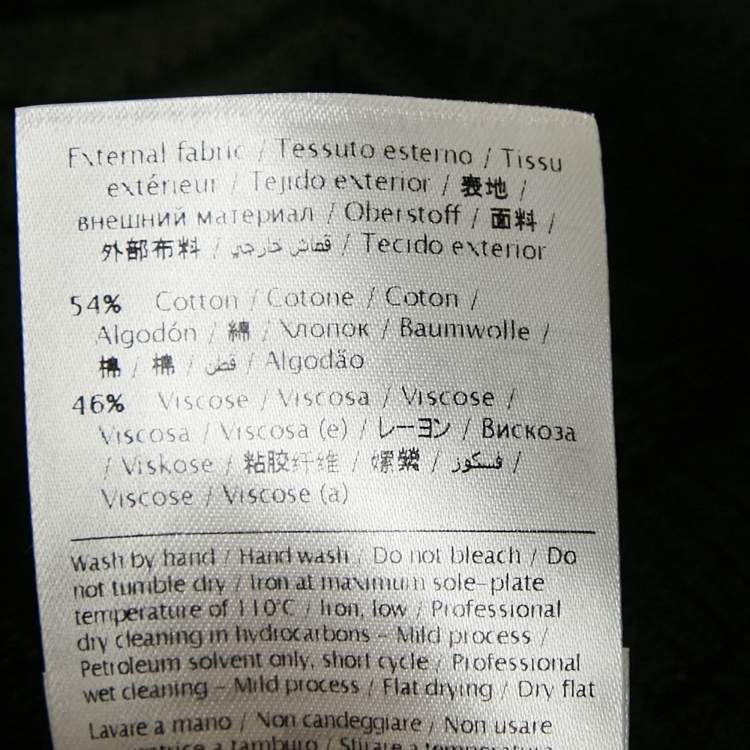 External fabric / Tessuto esterno / Tissu
extérieur / Tejido exterior / 表地 /
внешний материал / Oberstoff / 面料 /
外部布料 / قماش خارجي / Tecido exterior
54% Cotton / Cotone / Coton /
Algodón / 綿 / Хлопок / Baumwolle /
棉 / 棉 / قطن / Algodão
46% Viscose / Viscosa / Viscose /
Viscosa / Viscosa (e) / レーヨン / Вискоза
/ Viskose / 粘胶纤维 / 嫘縈 / فسكوز /
Viscose / Viscose (a)
Wash by hand / Hand wash / Do not bleach / Do
not tumble dry / Iron at maximum sole-plate
temperature of 110°C / Iron, low / Professional
dry cleaning in hydrocarbons - Mild process /
Petroleum solvent only, short cycle / Professional
wet cleaning - Mild process / Flat drying / Dry flat
Lavare a mano / Non candeggiare / Non usare
a tamburo / Stirare a temperatura